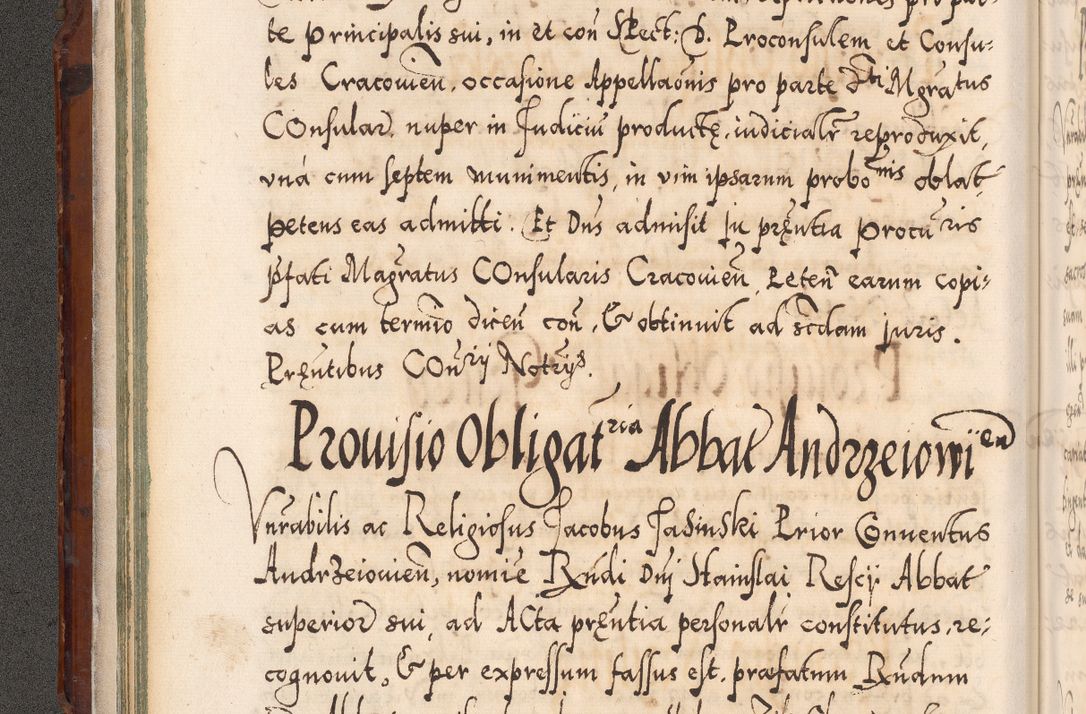 te Principalis sui, in et con Spect: D. Proconsulem et Consu-
les Cracouien, occasione Appellaonis pro parte dti Mgratus
COnsular, nuper in Judiciu producte, iudicialr reproduxit,
vná cum septem munimentis, in vim ipsarum probonis oblat
petens eas admitti. Et Dns admisit In prentia Procuris
pfati Magratus COnsularis Cracouien, Peten earum copi-
as cum termio dicen con, & obtinuit ad scdam juris.
Prentibus COnrij Notrys.
Prouisio Obligatria Abbat Andrzeiowien
Vnrabilis ac Religiosus Jacobus Jasinski Prior Conuentus
Andrzeiouien, nomie Rndi Dnj Stanislai Rescij Abbat
superior sui, ad ACta prentia personalr constitutus, re-
cognouit, & per expressum fassus est, præfatum Rndum